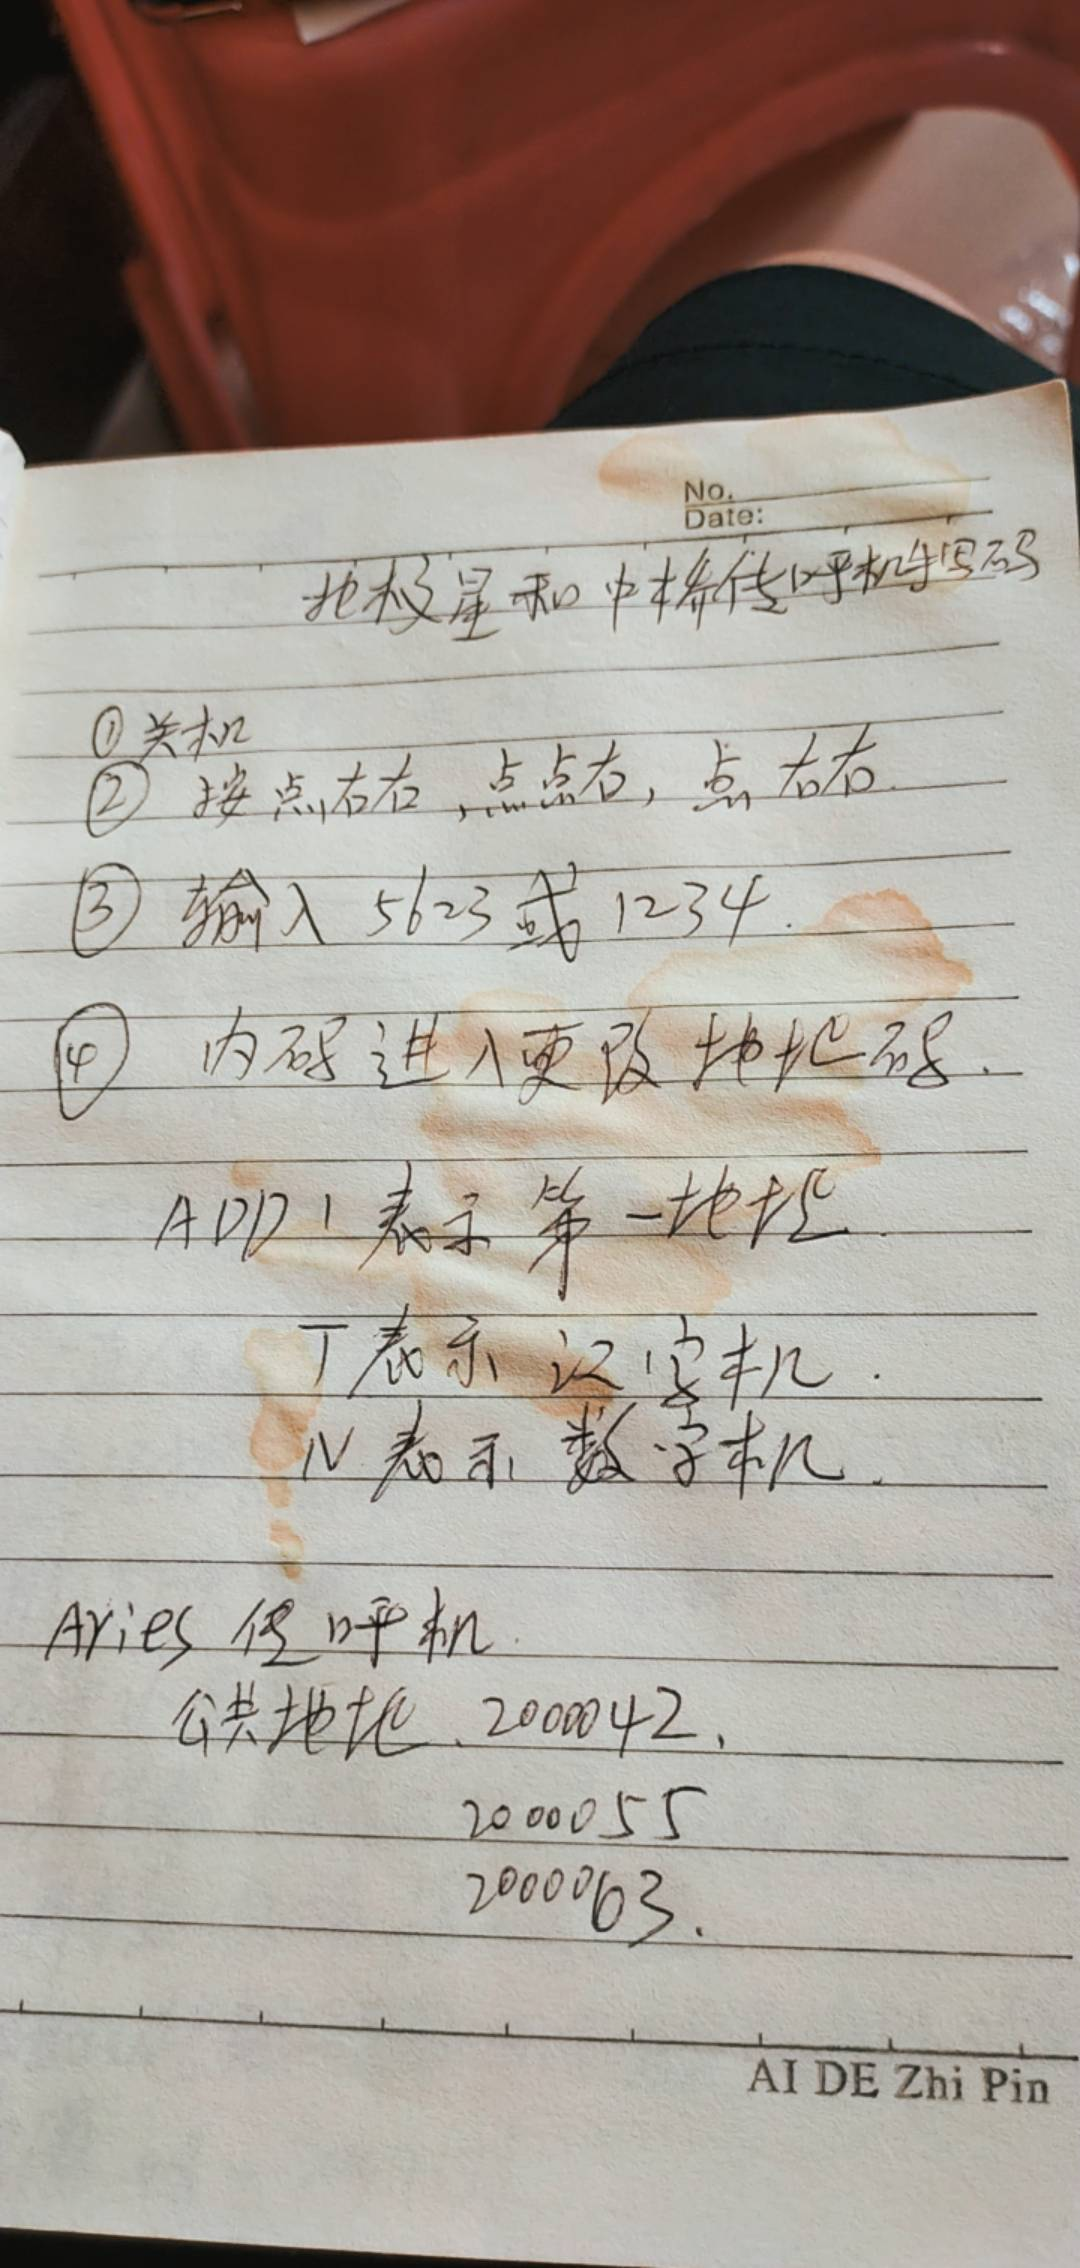 No.
Date:
北极星和中桥传呼机写码
①关机
② 按点右右,点点右,点右右.
③ 输入 5623或1234.
④ 内码进入更改地址码.
ADD1表示第一地址.
T表示 汉字机.
N表示 数字机.
Aries 传呼机.
公共地址、2000042,
2000055
2000063.
AI DE Zhi Pin